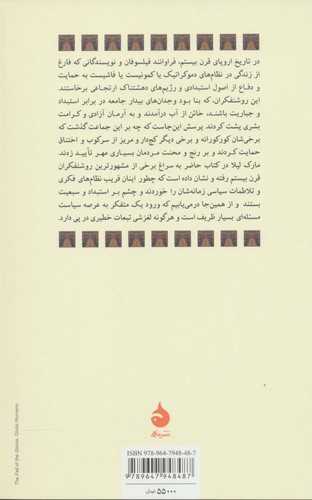 در تاریخ اروپای قرن بیستم، فراوانند فیلسوفان و نویسندگانی که فارغ
از زندگی در نظام‌های دموکراتیک یا کمونیست یا فاشیست به حمایت
و دفاع از اصول استبدادی و رژیم‌های دهشتناک ارتجاعی برخاستند.
این روشنفکران، که بنا بود وجدان‌های بیدار جامعه در برابر استبداد
و جباریت باشند، خائن از آب درآمدند و به آرمان آزادی و کرامت
بشری پشت کردند. پرسش این‌جاست که چه بر این جماعت گذشت که
برخی‌شان کورکورانه و برخی دیگر کج‌دار و مریز از سرکوب و اختناق
حمایت کردند و بر رنج و محنت مردمان بسیاری مهر تأیید زدند.
مارک لیلا در کتاب حاضر به سراغ برخی از مشهورترین روشنفکران
قرن بیستم رفته و نشان داده است که چطور اینان فریب نظام‌های فکری
و تلاطمات سیاسی زمانه‌شان را خوردند و چشم بر استبداد و سبعیت
بستند و از همین‌جا درمی‌یابیم که ورود یک متفکر به عرصه سیاست
مسئله‌ای بسیار ظریف است و هرگونه لغزشی تبعات خطیری در پی دارد.
The Fall of the Giants, Giulio Romano
نشر ماهی
ISBN 978-964-7948-48-7
9 789647 948487
۵۵۰۰۰ تومان